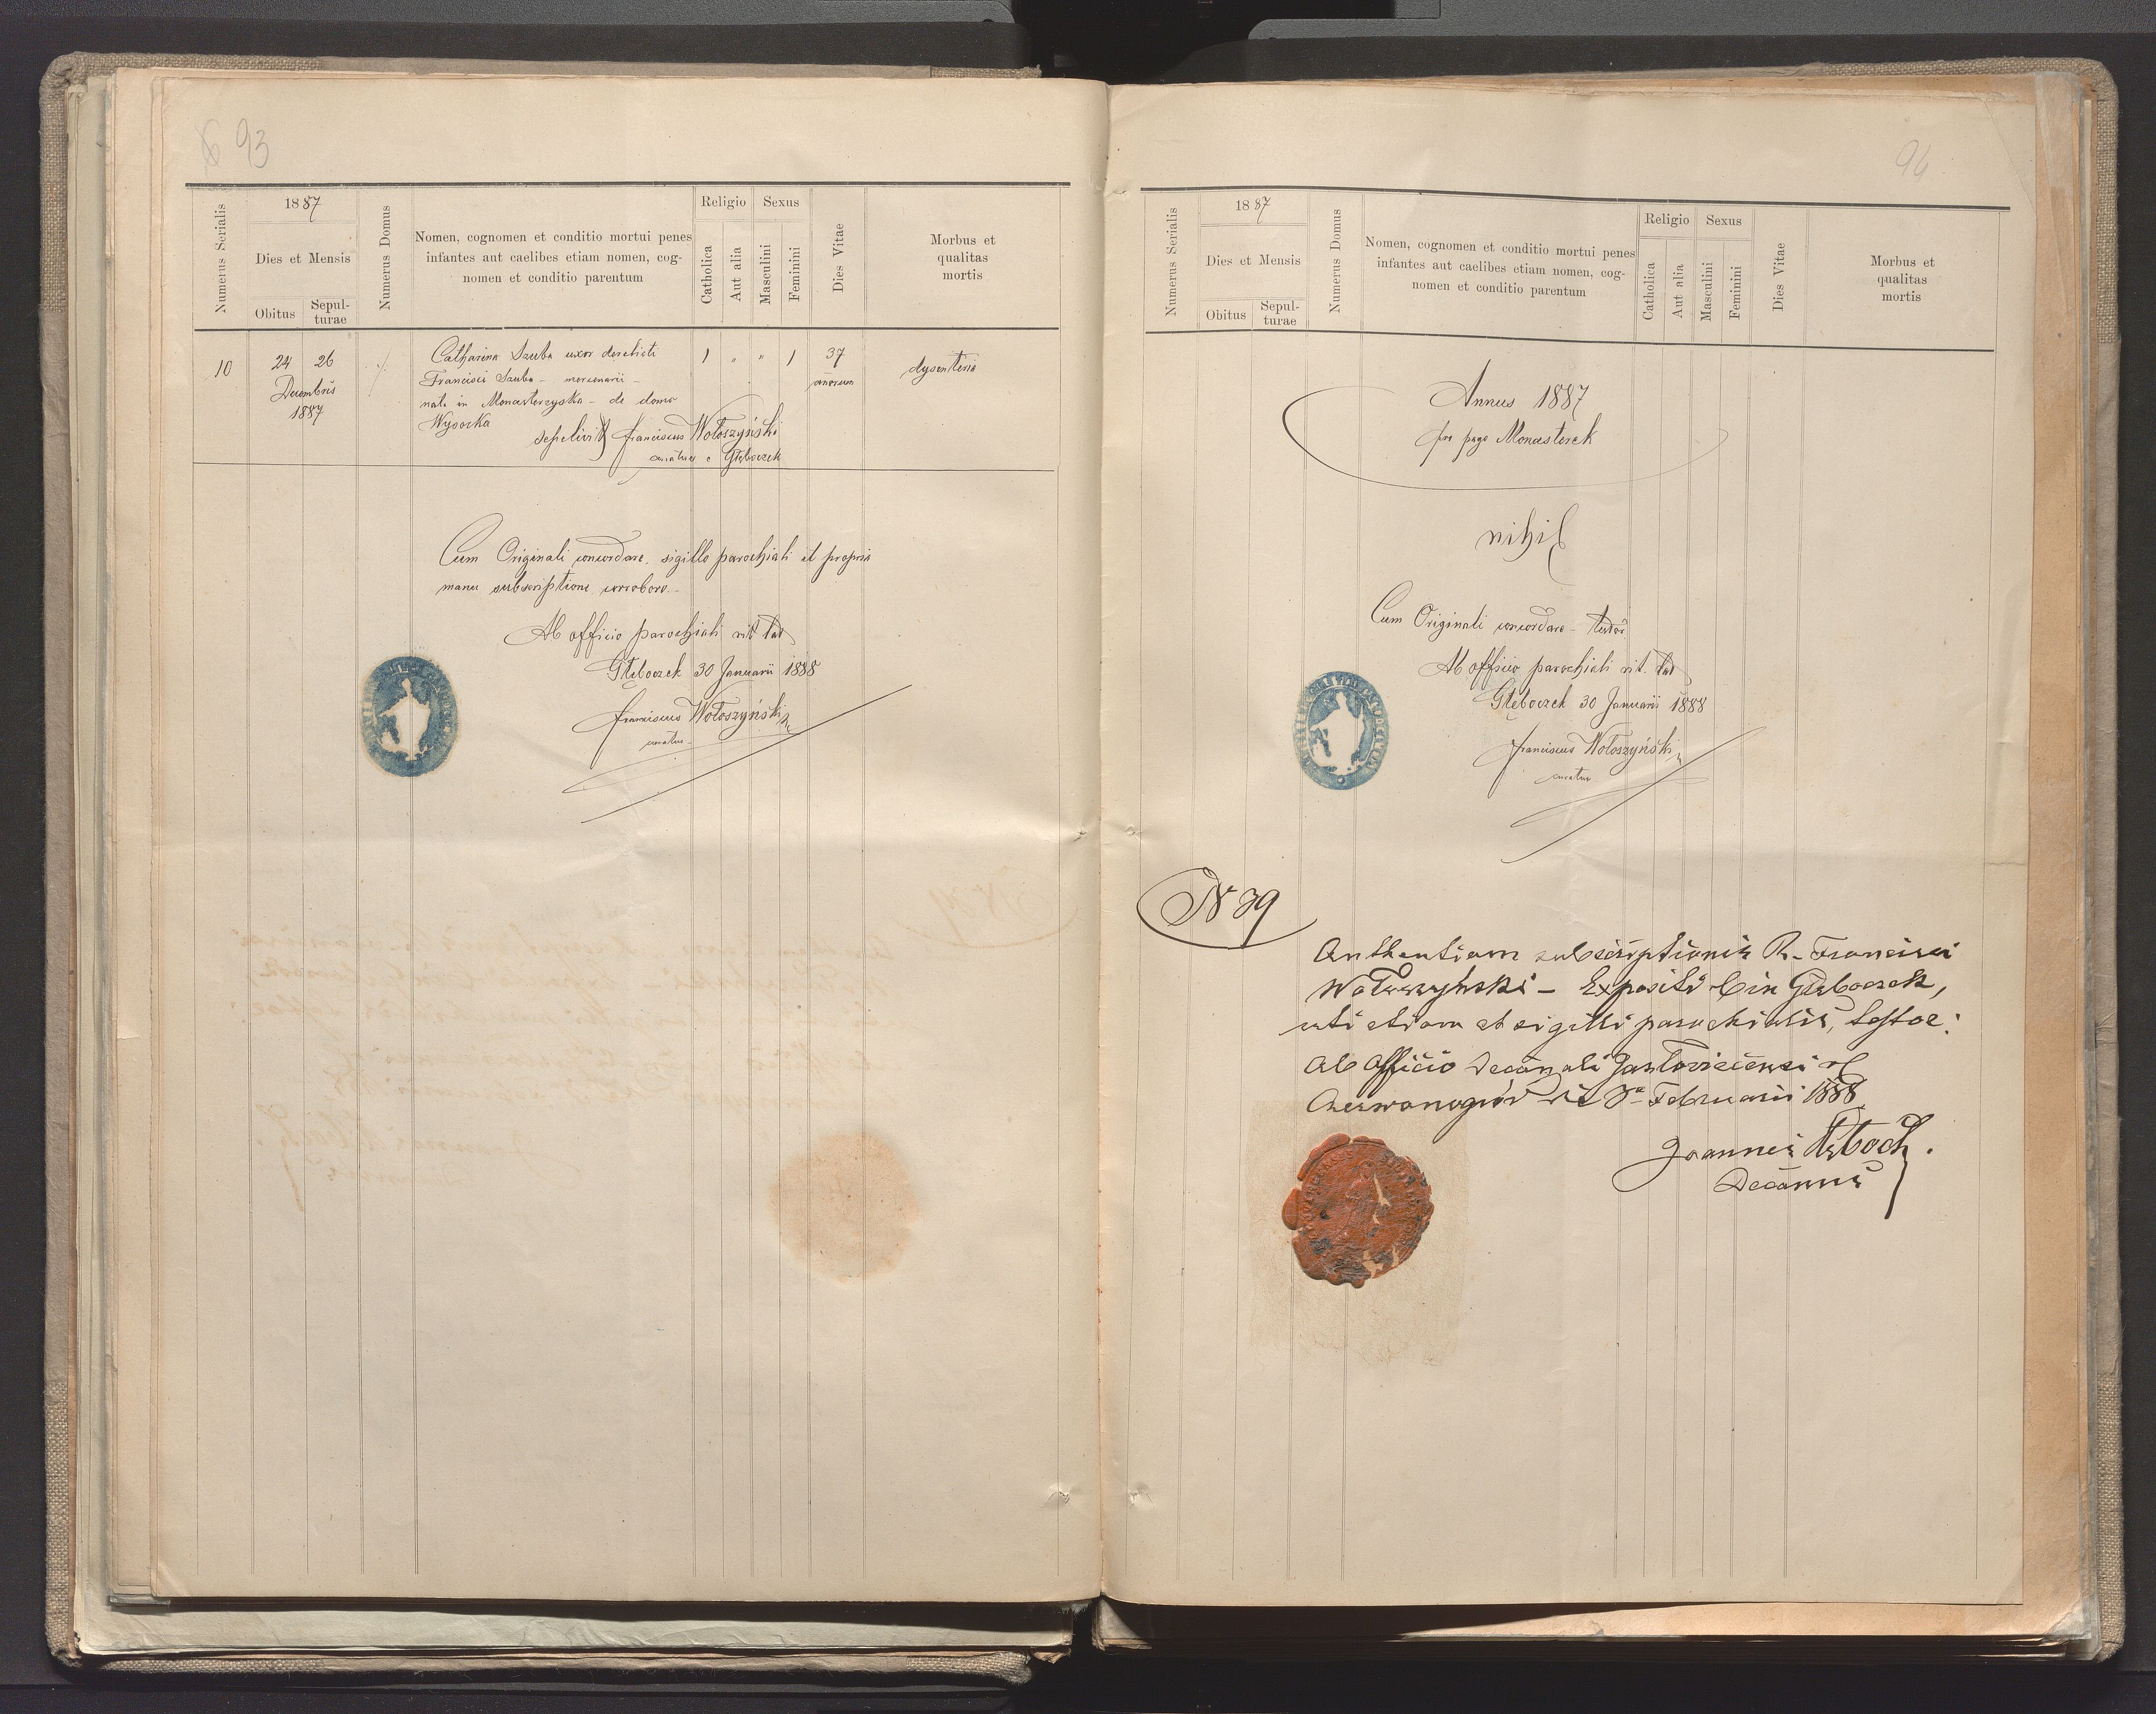 93
Numerus Serialis
1887
Dies et Mensis
Obitus
Sepul-
turae
Numerus Domus
Nomen, cognomen et conditio mortui penes
infantes aut caelibes etiam nomen, cog-
nomen et conditio parentum
Religio
Catholica
Aut alia
Sexus
Masculini
Feminini
Dies Vitae
Morbus et
qualitas
mortis
10
24 26
Decembris
1887
Catharina Szuba uxor derelicti
Francisci Szuba - mercenarii -
nata in Monasterzyska - de domo
Wysocka
sepelivit Franciscus Wołoszyński
curatus e Głęboczek
1 " " 1
37
annorum
dysenteria
Cum Originali concordare, sigillo parochiali et propria
manu subscriptione corroboro.-
Ab officio parochiali rit. lat
Głęboczek 30 Januarii 1888
Franciscus Wołoszyński
curatus
94
Numerus Serialis
1887
Dies et Mensis
Obitus
Sepul-
turae
Numerus Domus
Nomen, cognomen et conditio mortui penes
infantes aut caelibes etiam nomen, cog-
nomen et conditio parentum
Religio
Catholica
Aut alia
Sexus
Masculini
Feminini
Dies Vitae
Morbus et
qualitas
mortis
Annus 1887
pro pago Monasterek
nihil
Cum Originali concordare - testor
Ab officio parochiali rit. lat
Głęboczek 30 Januarii 1888
Franciscus Wołoszyński
curatus
N 39
Authentiam subscriptionis R. Francisci
Wołoszyński - Expositi in Głęboczek,
uti etiam et sigilli parochialis, testor:
Ab Officio Decanali Jazłoviecensi rl
Czerwonogród Februarii 1888
Joannes
Decanus